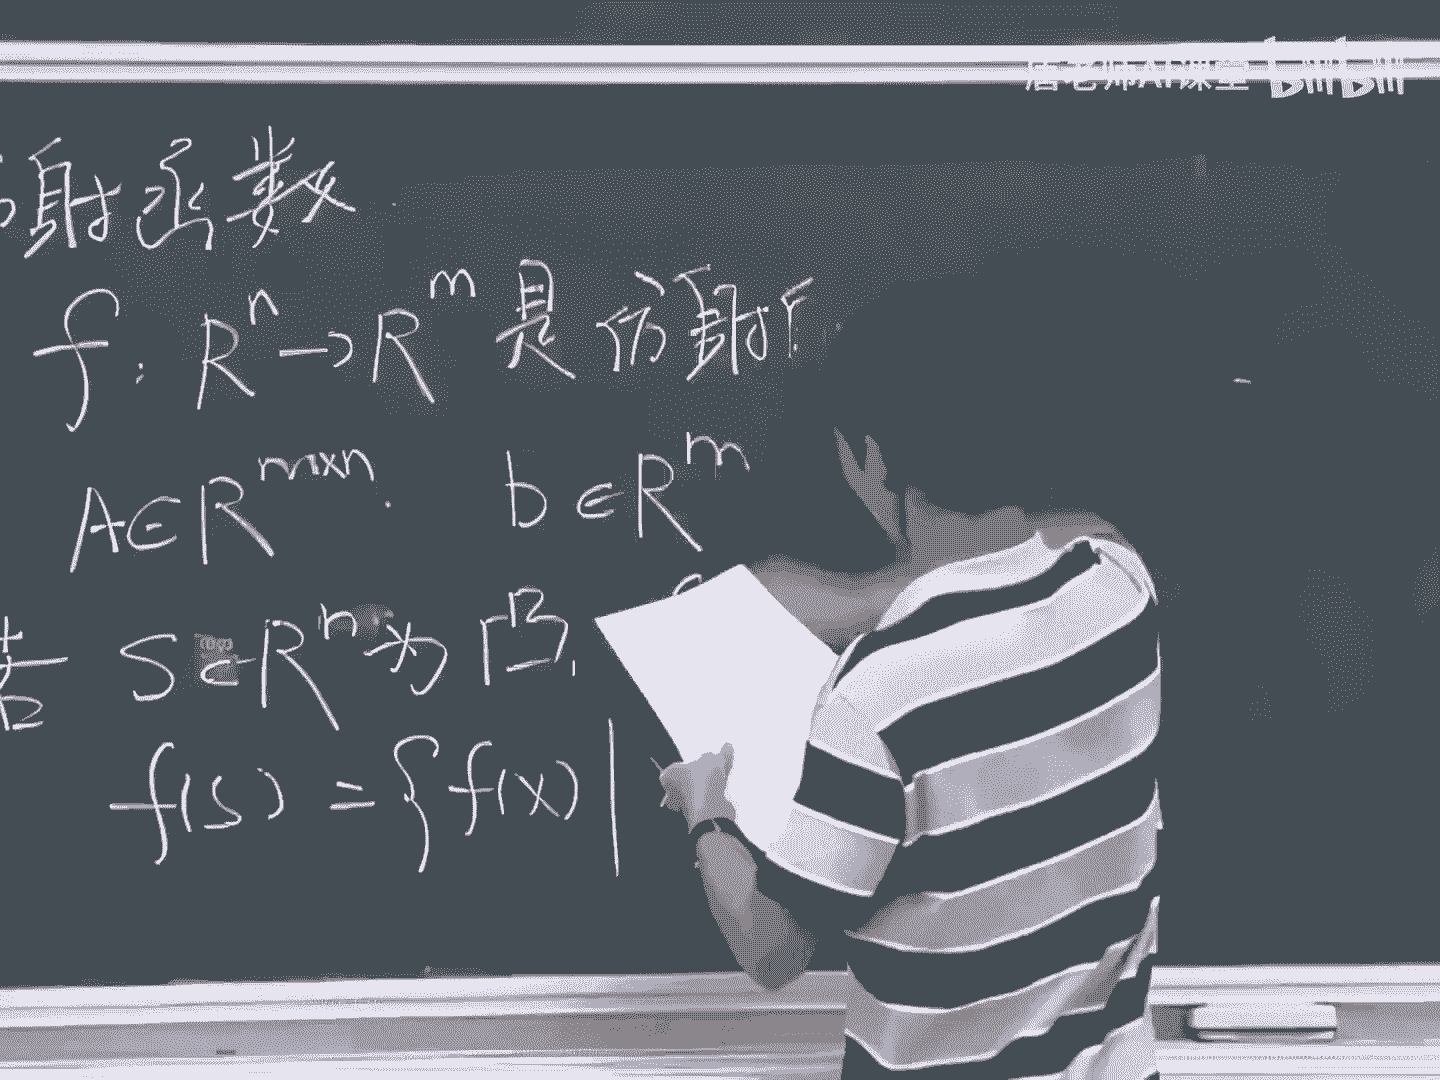 唐老师AI课堂 bilibili
仿射函数
f: Rⁿ→Rᵐ 是仿射
A∈Rᵐˣⁿ. b∈Rᵐ
若 S∈Rⁿ 为凸
f(s) = {f(x) |